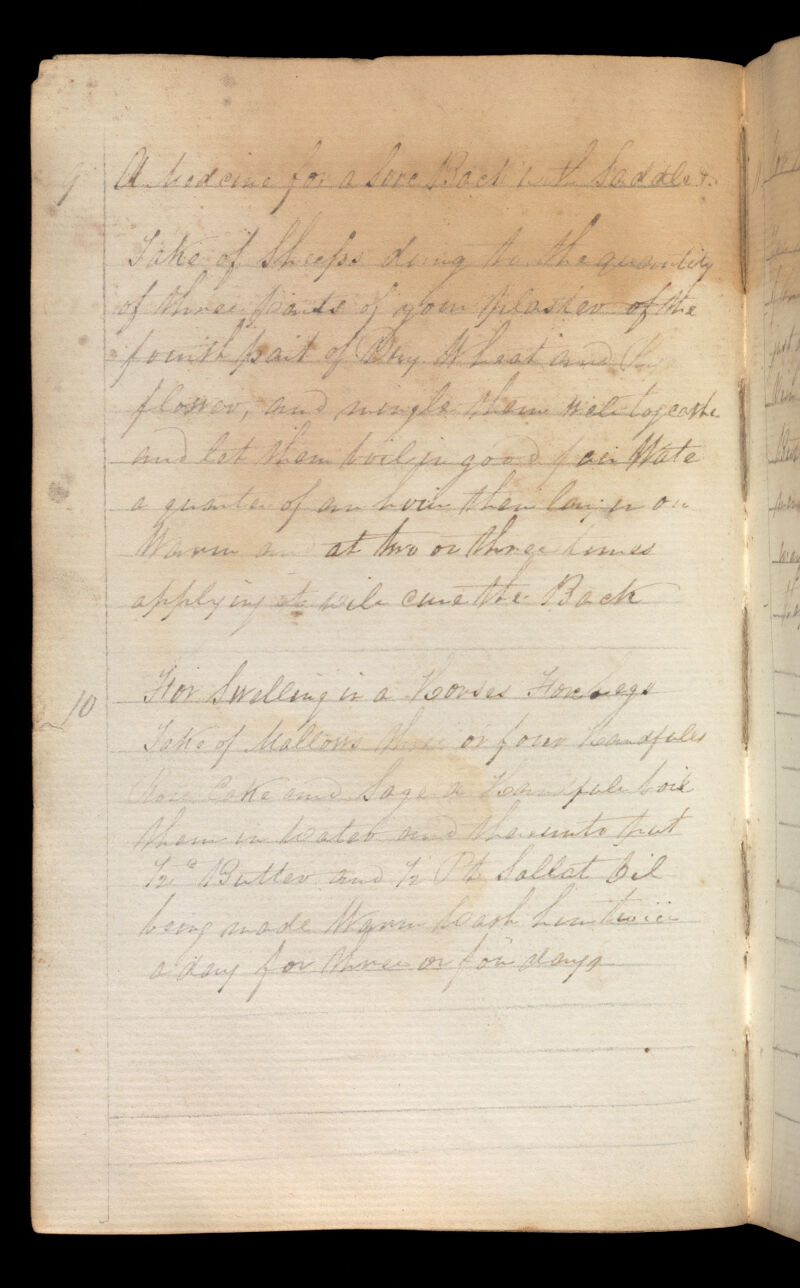 9 A Medcine for a Sore Back with Saddle &.
Take of Sheeps dung to the quantity
of three parts of your plaster of the
fourth part of Dry Wheat and
flower, and mingle them well togeathe
and let them boil in good fair Wate
a quarter of an hour then lay it on
Warm and at two or three times
applying it will cure the Back
10 For Swelling in a Horses Fore Legs
Take of Mallows three or four handfules
Rose Cake and Sage a Handfule boil
them in Water and thereunto put
½ lb Butter and ½ Pt Sallat Oil
being made Warm Wash him twice
a day for three or four days